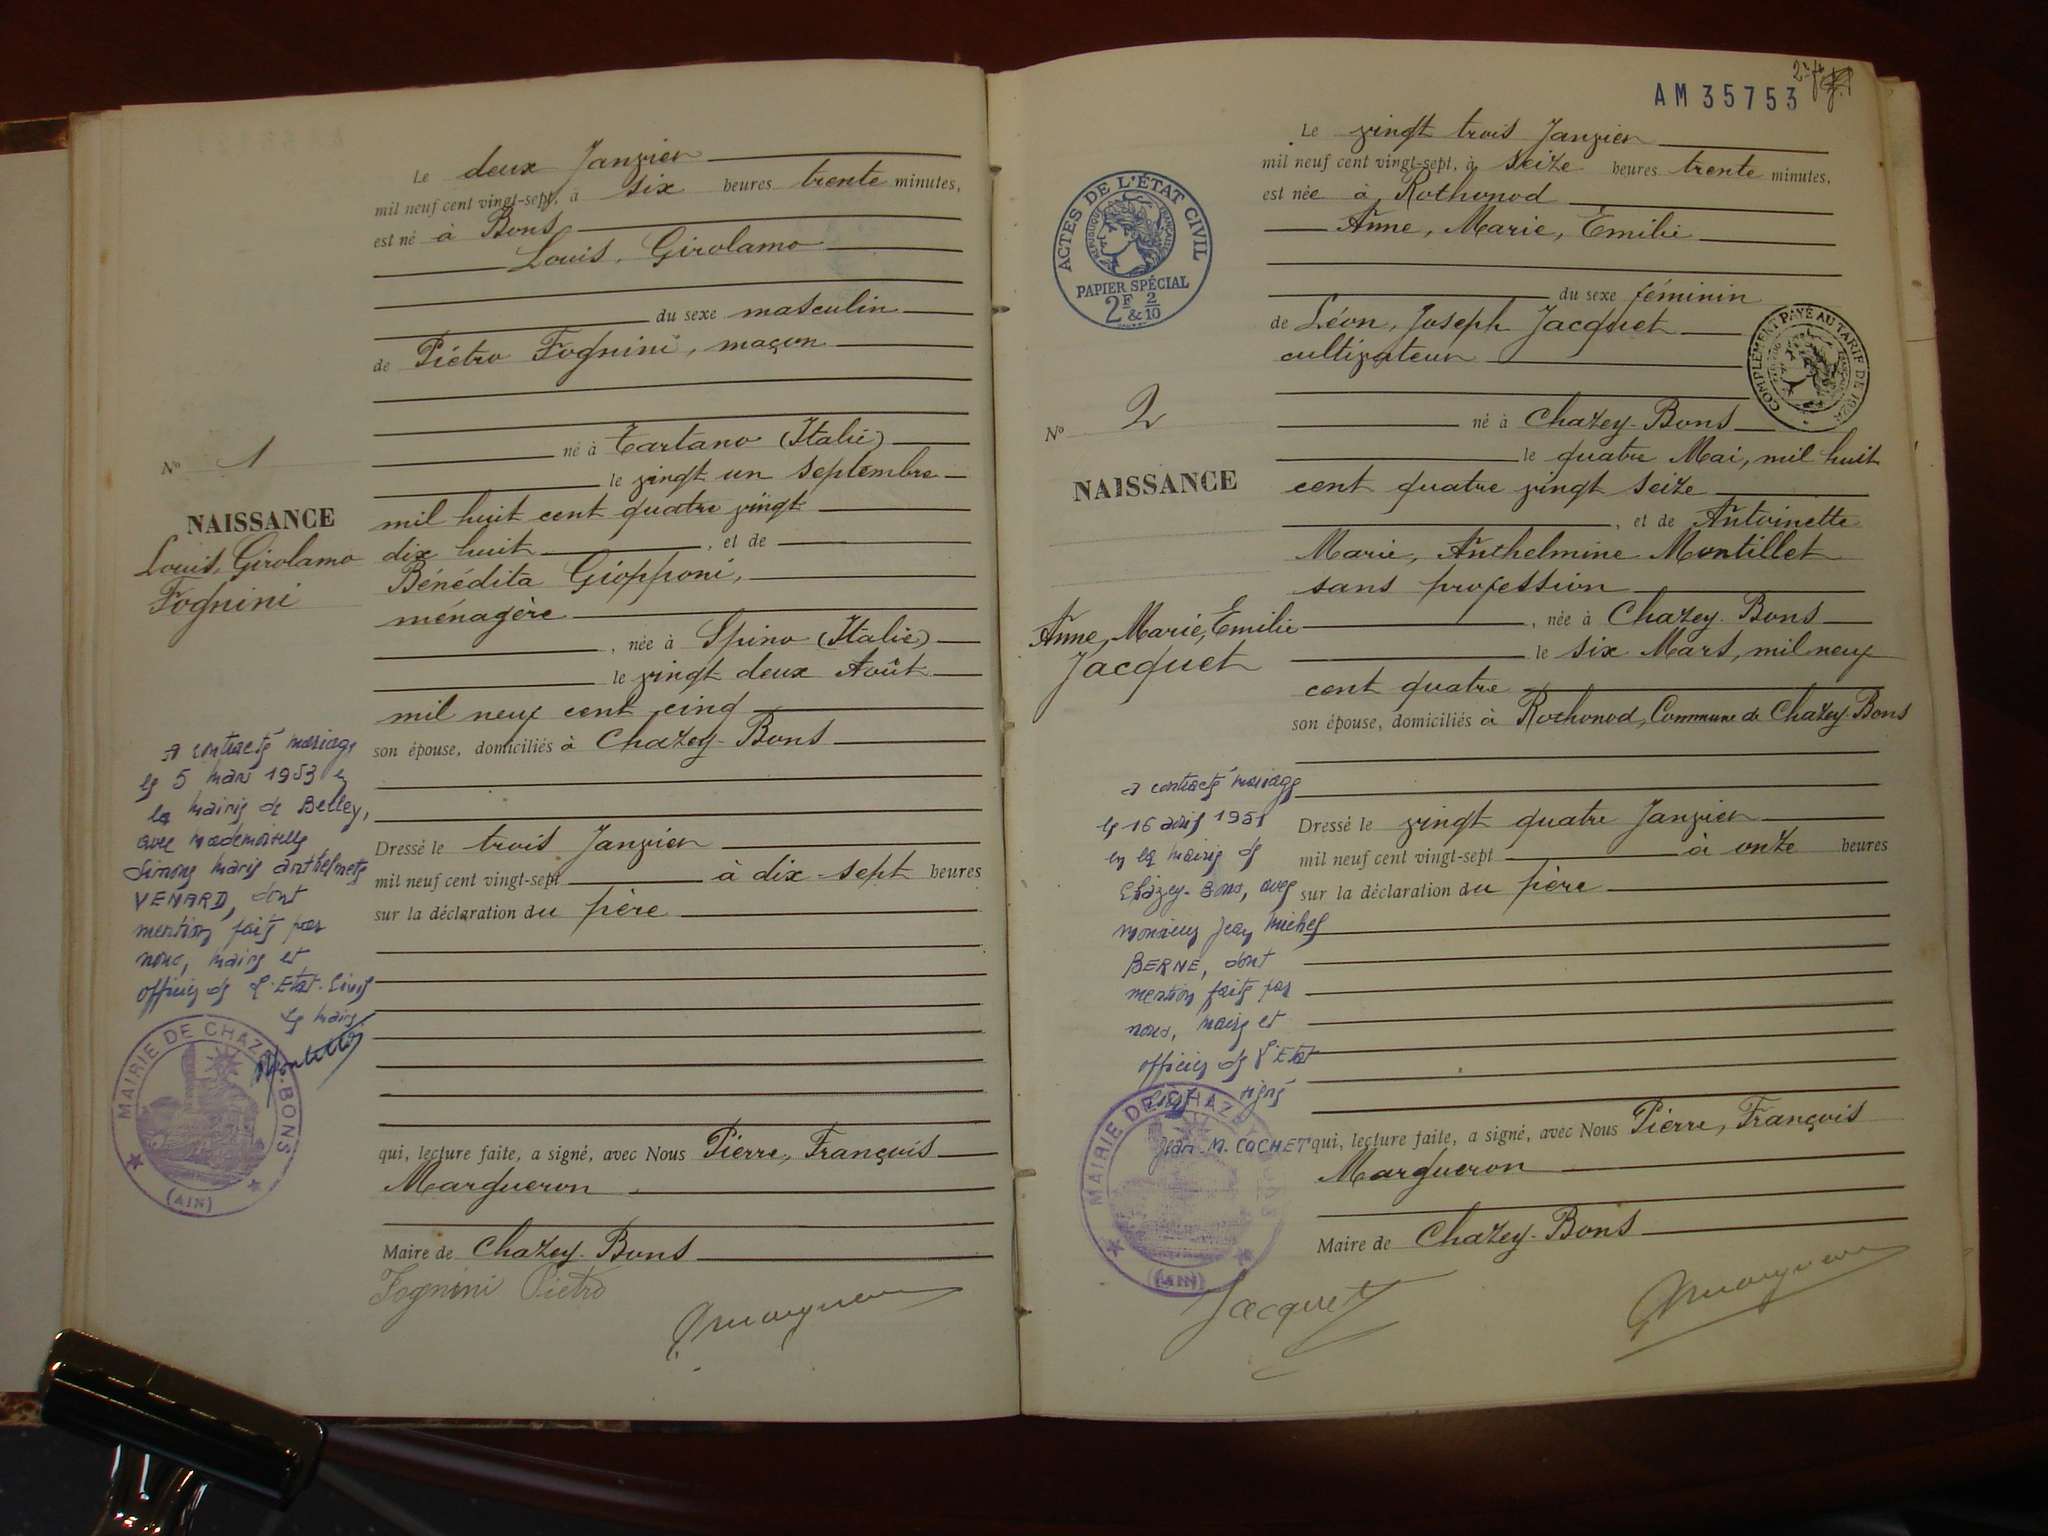 Le deux Janvier
mil neuf cent vingt-sept, à six heures trente minutes,
est né à Bons
Louis, Girolamo
du sexe masculin
de Piétro Fognini, maçon
né à Tartano (Italie)
le vingt un septembre
mil huit cent quatre vingt
dix huit, et de
Bénédita Giopponi,
ménagère
, née à Spino (Italie)
le vingt deux Août
mil neuf cent cinq
son épouse, domiciliés à Chazey-Bons
Dressé le trois Janvier
mil neuf cent vingt-sept à dix-sept heures
sur la déclaration du père
qui, lecture faite, a signé, avec Nous Pierre, François
Margueron
Maire de Chazey-Bons
Fognini Pietro
No 1
NAISSANCE
Louis, Girolamo
Fognini
A contracté mariage
le 5 mars 1953 en
la mairie de Belley,
avec mademoiselle
Simone Marie Anthelmette
VENARD, dont
mention faite par
nous, maire et
officier de l'Etat-Civil
le maire
MAIRIE DE CHAZEY-BONS
(AIN)
AM 35753
Le vingt trois Janvier
mil neuf cent vingt-sept, à seize heures trente minutes,
est née à Rothonod
Anne, Marie, Émilie
du sexe féminin
de Léon, Joseph Jacquet
cultivateur
né à Chazey-Bons
le quatre Mai, mil huit
cent quatre vingt seize
, et de Antoinette
Marie, Anthelmine Montillet
sans profession
, née à Chazey-Bons
le six Mars, mil neuf
cent quatre
son épouse, domiciliés à Rothonod, Commune de Chazey-Bons
Dressé le vingt quatre Janvier
mil neuf cent vingt-sept à onze heures
sur la déclaration du père
qui, lecture faite, a signé, avec Nous Pierre, François
Margueron
Maire de Chazey-Bons
Jacquet
ACTES DE L'ÉTAT CIVIL
RÉPUBLIQUE FRANÇAISE
PAPIER SPÉCIAL
2F & 2/10
COMPLÉMENT PAYÉ AU TARIF DE
No 2
NAISSANCE
Anne, Marie, Emilie
Jacquet
A contracté mariage
le 16 avril 1951
en la mairie de
Chazey-Bons, avec
monsieur Jean Michel
BERNE, dont
mention faite par
nous, maire et
officier de l'Etat
Civil signé
Jean-M. COCHET
MAIRIE DE CHAZEY-BONS
(AIN)